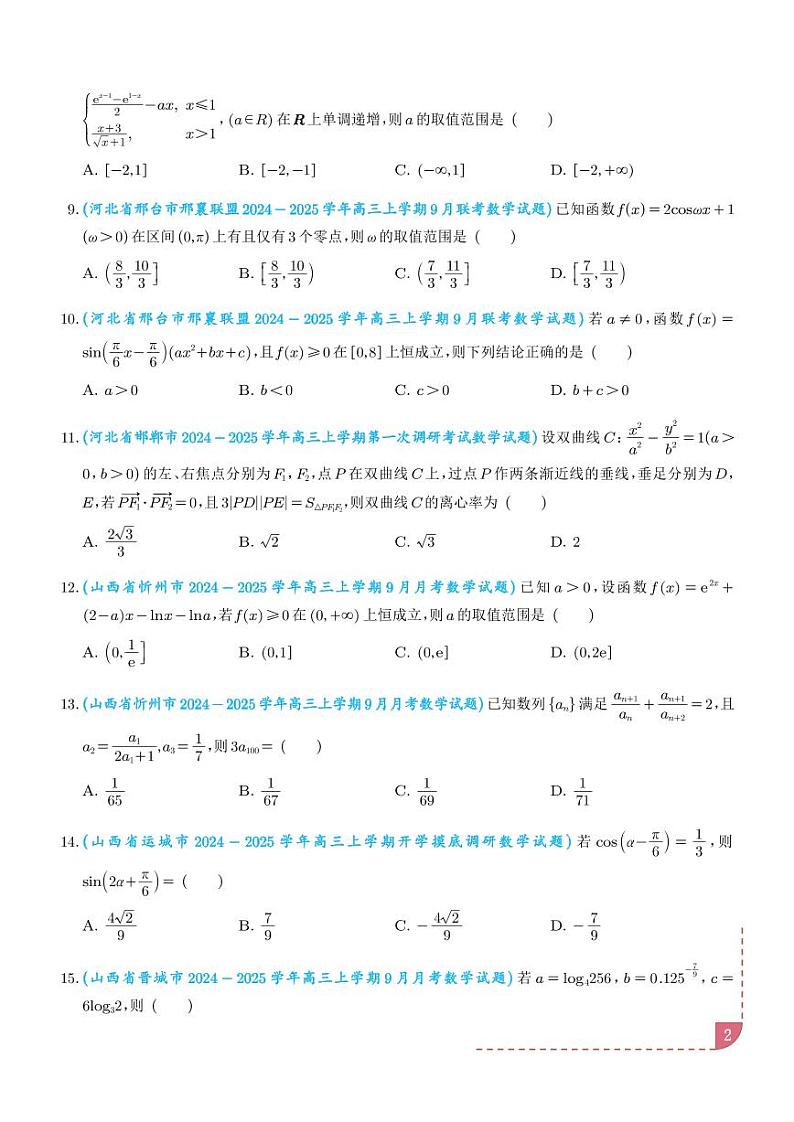 { (e^{x-1}-e^{1-x})/2 -ax, x≤1
(x+3)/(√x+1), x>1 ,(a∈R)在R上单调递增,则a的取值范围是 ( )
A. [-2,1] B. [-2,-1] C. (-∞,1] D. [-2,+∞)
9. (河北省邢台市邢襄联盟2024-2025学年高三上学期9月联考数学试题)已知函数f(x)=2cosωx+1
(ω>0)在区间(0,π)上有且仅有3个零点,则ω的取值范围是 ( )
A. (8/3,10/3] B. [8/3,10/3) C. (7/3,11/3] D. [7/3,11/3)
10. (河北省邢台市邢襄联盟2024-2025学年高三上学期9月联考数学试题)若a≠0,函数f(x)=
sin(π/6 x-π/6)(ax²+bx+c),且f(x)≥0在[0,8]上恒成立,则下列结论正确的是 ( )
A. a>0 B. b<0 C. c>0 D. b+c>0
11. (河北省邯郸市2024-2025学年高三上学期第一次调研考试数学试题)设双曲线C: x²/a² - y²/b² =1(a>
0,b>0)的左、右焦点分别为F₁,F₂,点P在双曲线C上,过点P作两条渐近线的垂线,垂足分别为D,
E,若→PF₁·→PF₂=0,且3|PD||PE|=S△PF₁F₂,则双曲线C的离心率为 ( )
A. 2√3/3 B. √2 C. √3 D. 2
12. (山西省忻州市2024-2025学年高三上学期9月月考数学试题)已知a>0,设函数f(x)=e^{2x}+
(2-a)x-lnx-lna,若f(x)≥0在(0,+∞)上恒成立,则a的取值范围是 ( )
A. (0,1/e] B. (0,1] C. (0,e] D. (0,2e]
13. (山西省忻州市2024-2025学年高三上学期9月月考数学试题)已知数列{aₙ}满足 aₙ₊₁/aₙ + aₙ₊₁/aₙ₊₂ =2,且
a₂= a₁/(2a₁+1),a₃=1/7,则3a₁₀₀= ( )
A. 1/65 B. 1/67 C. 1/69 D. 1/71
14. (山西省运城市2024-2025学年高三上学期开学摸底调研数学试题)若cos(α-π/6)=1/3,则
sin(2α+π/6)= ( )
A. 4√2/9 B. 7/9 C. -4√2/9 D. -7/9
15. (山西省晋城市2024-2025学年高三上学期9月月考数学试题)若a=log₄256,b=0.125^{-7/9},c=
6log₃2,则 ( )
2